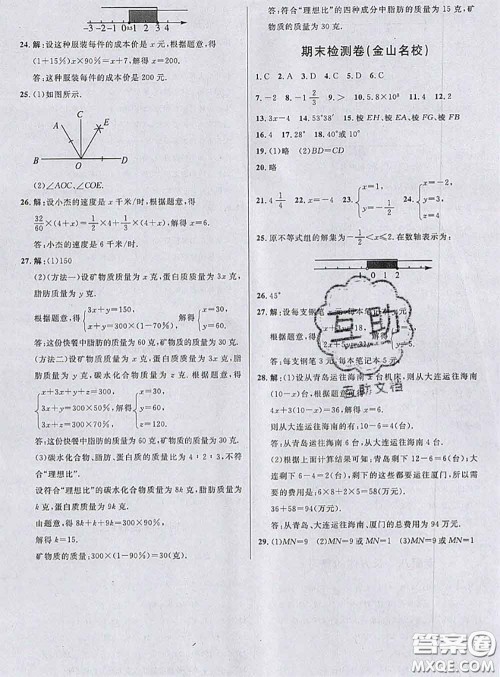 -3 -2 -1 0 0.5 1 2 3 4
24. 解:设这种服装每件的成本价是 x 元,根据题意,得
(1+15%)x×90%=x+7. 解得 x=200.
答:这种服装每件的成本价为 200 元.
25. (1)如图所示.
A C E
B O D
(2)∠AOC、∠COE.
26. 解:设小杰的速度是 x 千米/时,根据题意,得
32/60×(4+x)=1/2×4+1/3×(4+x). 解得 x=6.
答:小杰的速度是 6 千米/时.
27. 解:(1)150
(2)(方法一)设矿物质质量为 x 克,蛋白质质量为 y 克,
脂肪质量为 z 克.
根据题意,得 {3x+y=150, x+y=300×(1-70%). 解得 {x=30, y=60.
答:这份快餐中脂肪的质量为 60 克.
(方法二)设矿物质质量为 x 克,蛋白质质量为 y 克,
脂肪质量为 z 克,碳水化合物质量为 z 克. 根据题意,得
{x+3x+y+z=300, 3x+z=300×50%, x+z=300×70%. 解得 {x=30, y=60, z=180.
答:这份快餐中脂肪的质量为 60 克.
(3)碳水化合物、脂肪、矿物质的质量比为 4∶2∶3,不
符合“理想比”.
设符合“理想比”的碳水化合物质量为 8k 克,脂肪质量为
k 克,蛋白质质量为 9k 克.
由题意,得 8k+k+9k=300×(1-10%).
解得 k=15.
矿物质质量:300×(1-90%)=30(克).
答:符合“理想比”的四种成分中脂肪的质量为 15 克,矿
物质的质量为 30 克.
期末检测卷(金山名校)
1. C 2. A 3. D 4. C 5. D 6. C
9. > 10. 5.8×10⁸ 11. 4 12. 2
13. 3x-4 14. 53°38′ 15. 棱 EH、棱 AG、棱 FG、棱 FB
16. 4 17. 28° 18. 40°或 10°
19. (1)略 (2)BD=CD
20. 略
21. 4 1/4 22. x=-1/4 23. {x=-1, y=3 24. {x=1, y=-2, z=4
25. 原不等式组的解集为-1/2<x≤2. 在数轴上表示为:
26. 45°
27. 解:设每支钢笔
根据题意,得
答:每支钢笔 3 元,每本笔记本 5 元.
28. 解:(1)设从青岛运往海南 x 台机床,则从大连运往海南
(10-x)台. 根据题意,得
4x+3(10-x)=36. 解得 x=6.
则从大连运往海南的有:10-6=4(台).
答:从青岛运往海南 6 台,从大连运往海南 4 台.
(2)根据上面计算结果可知:青岛剩下 12-6=6(台),大
连剩下 6-4=2(台),剩下的这些都要运往厦门,所以需
要的费用是:6×8+2×5=58(万元).
36+58=94(万元).
答:从青岛、大连运往海南、厦门的总费用为 94 万元.
29. (1)MN=9 (2)MN=9 或 MN=1 (3)MN=9
互助
互助文档
答案圈
MXQE.COM